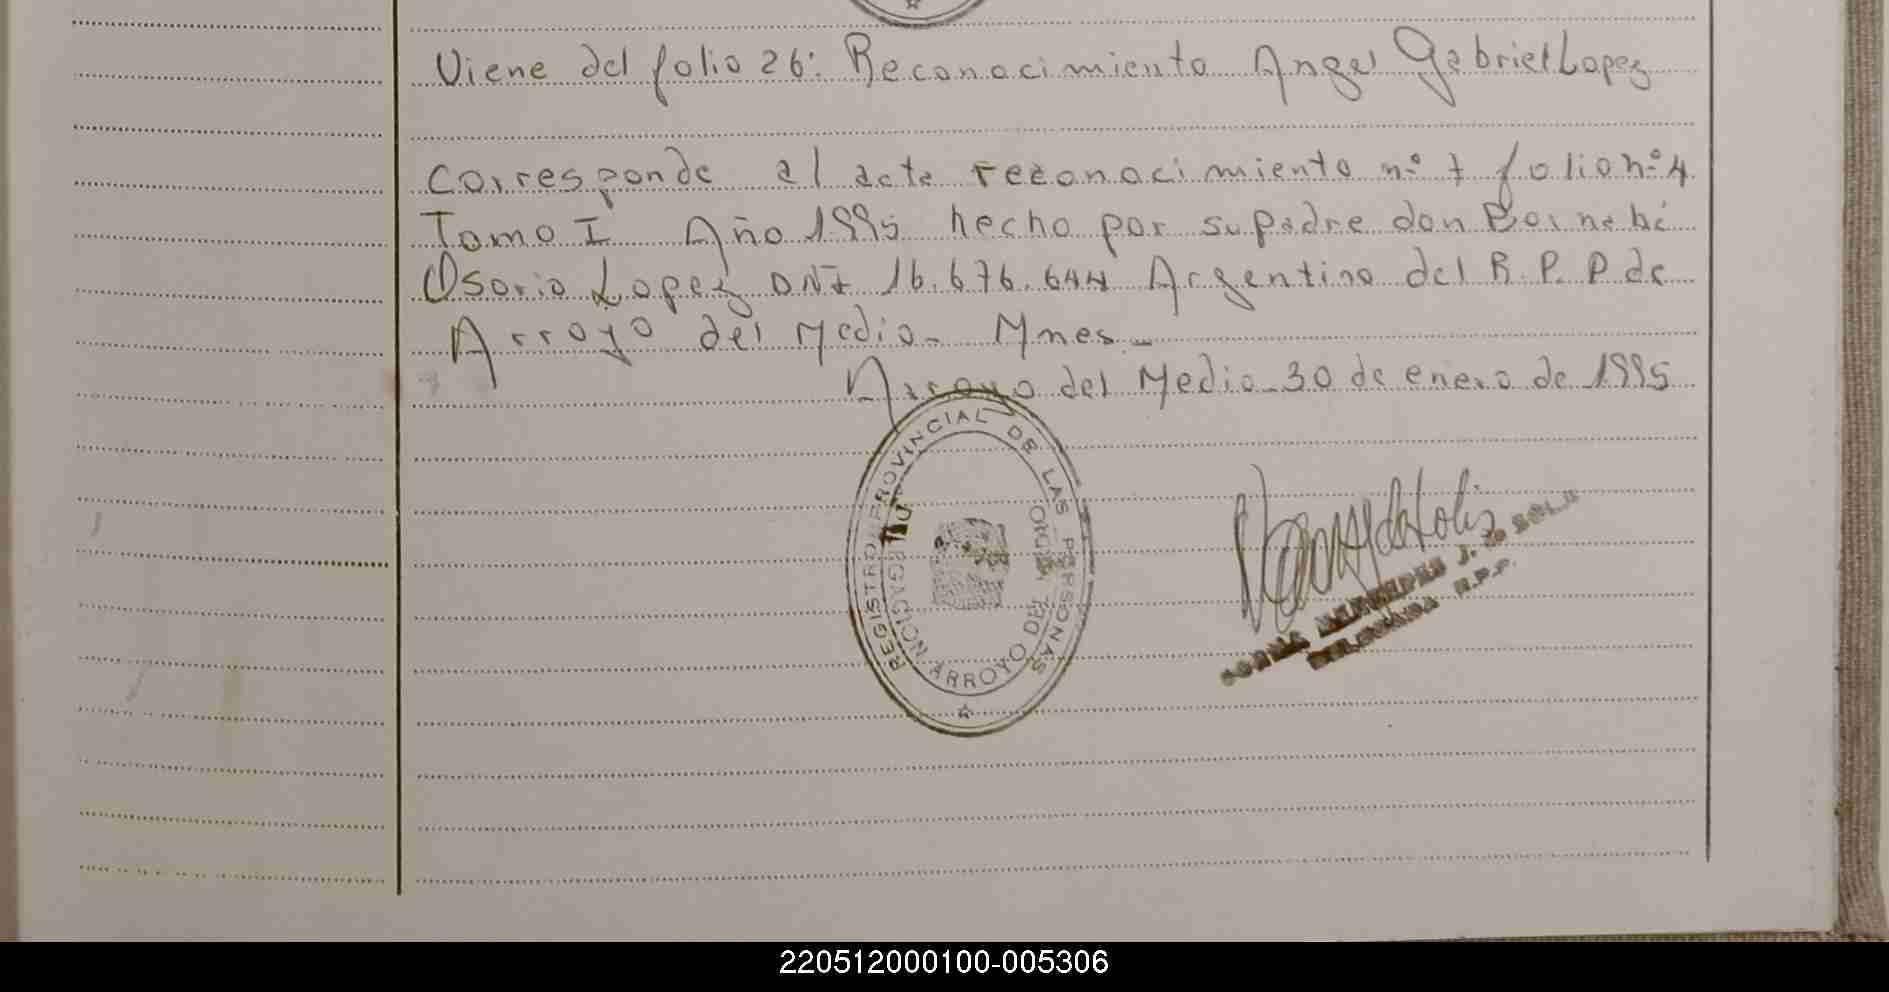 Viene del folio 26: Reconocimiento Angel Gabriel Lopez
Corresponde al acta reconocimiento nº 7 folio nº 4
Tomo I Año 1995 hecho por su padre don Bernabé
Osorio Lopez DNI 16.676.644 Argentino del R.P.P de
Arroyo del Medio - Mnes -
Arroyo del Medio - 30 de enero de 1995
REGISTRO PROVINCIAL DE LAS PERSONAS
DELEGACION ARROYO DEL MEDIO
R.P.P.
220512000100-005306